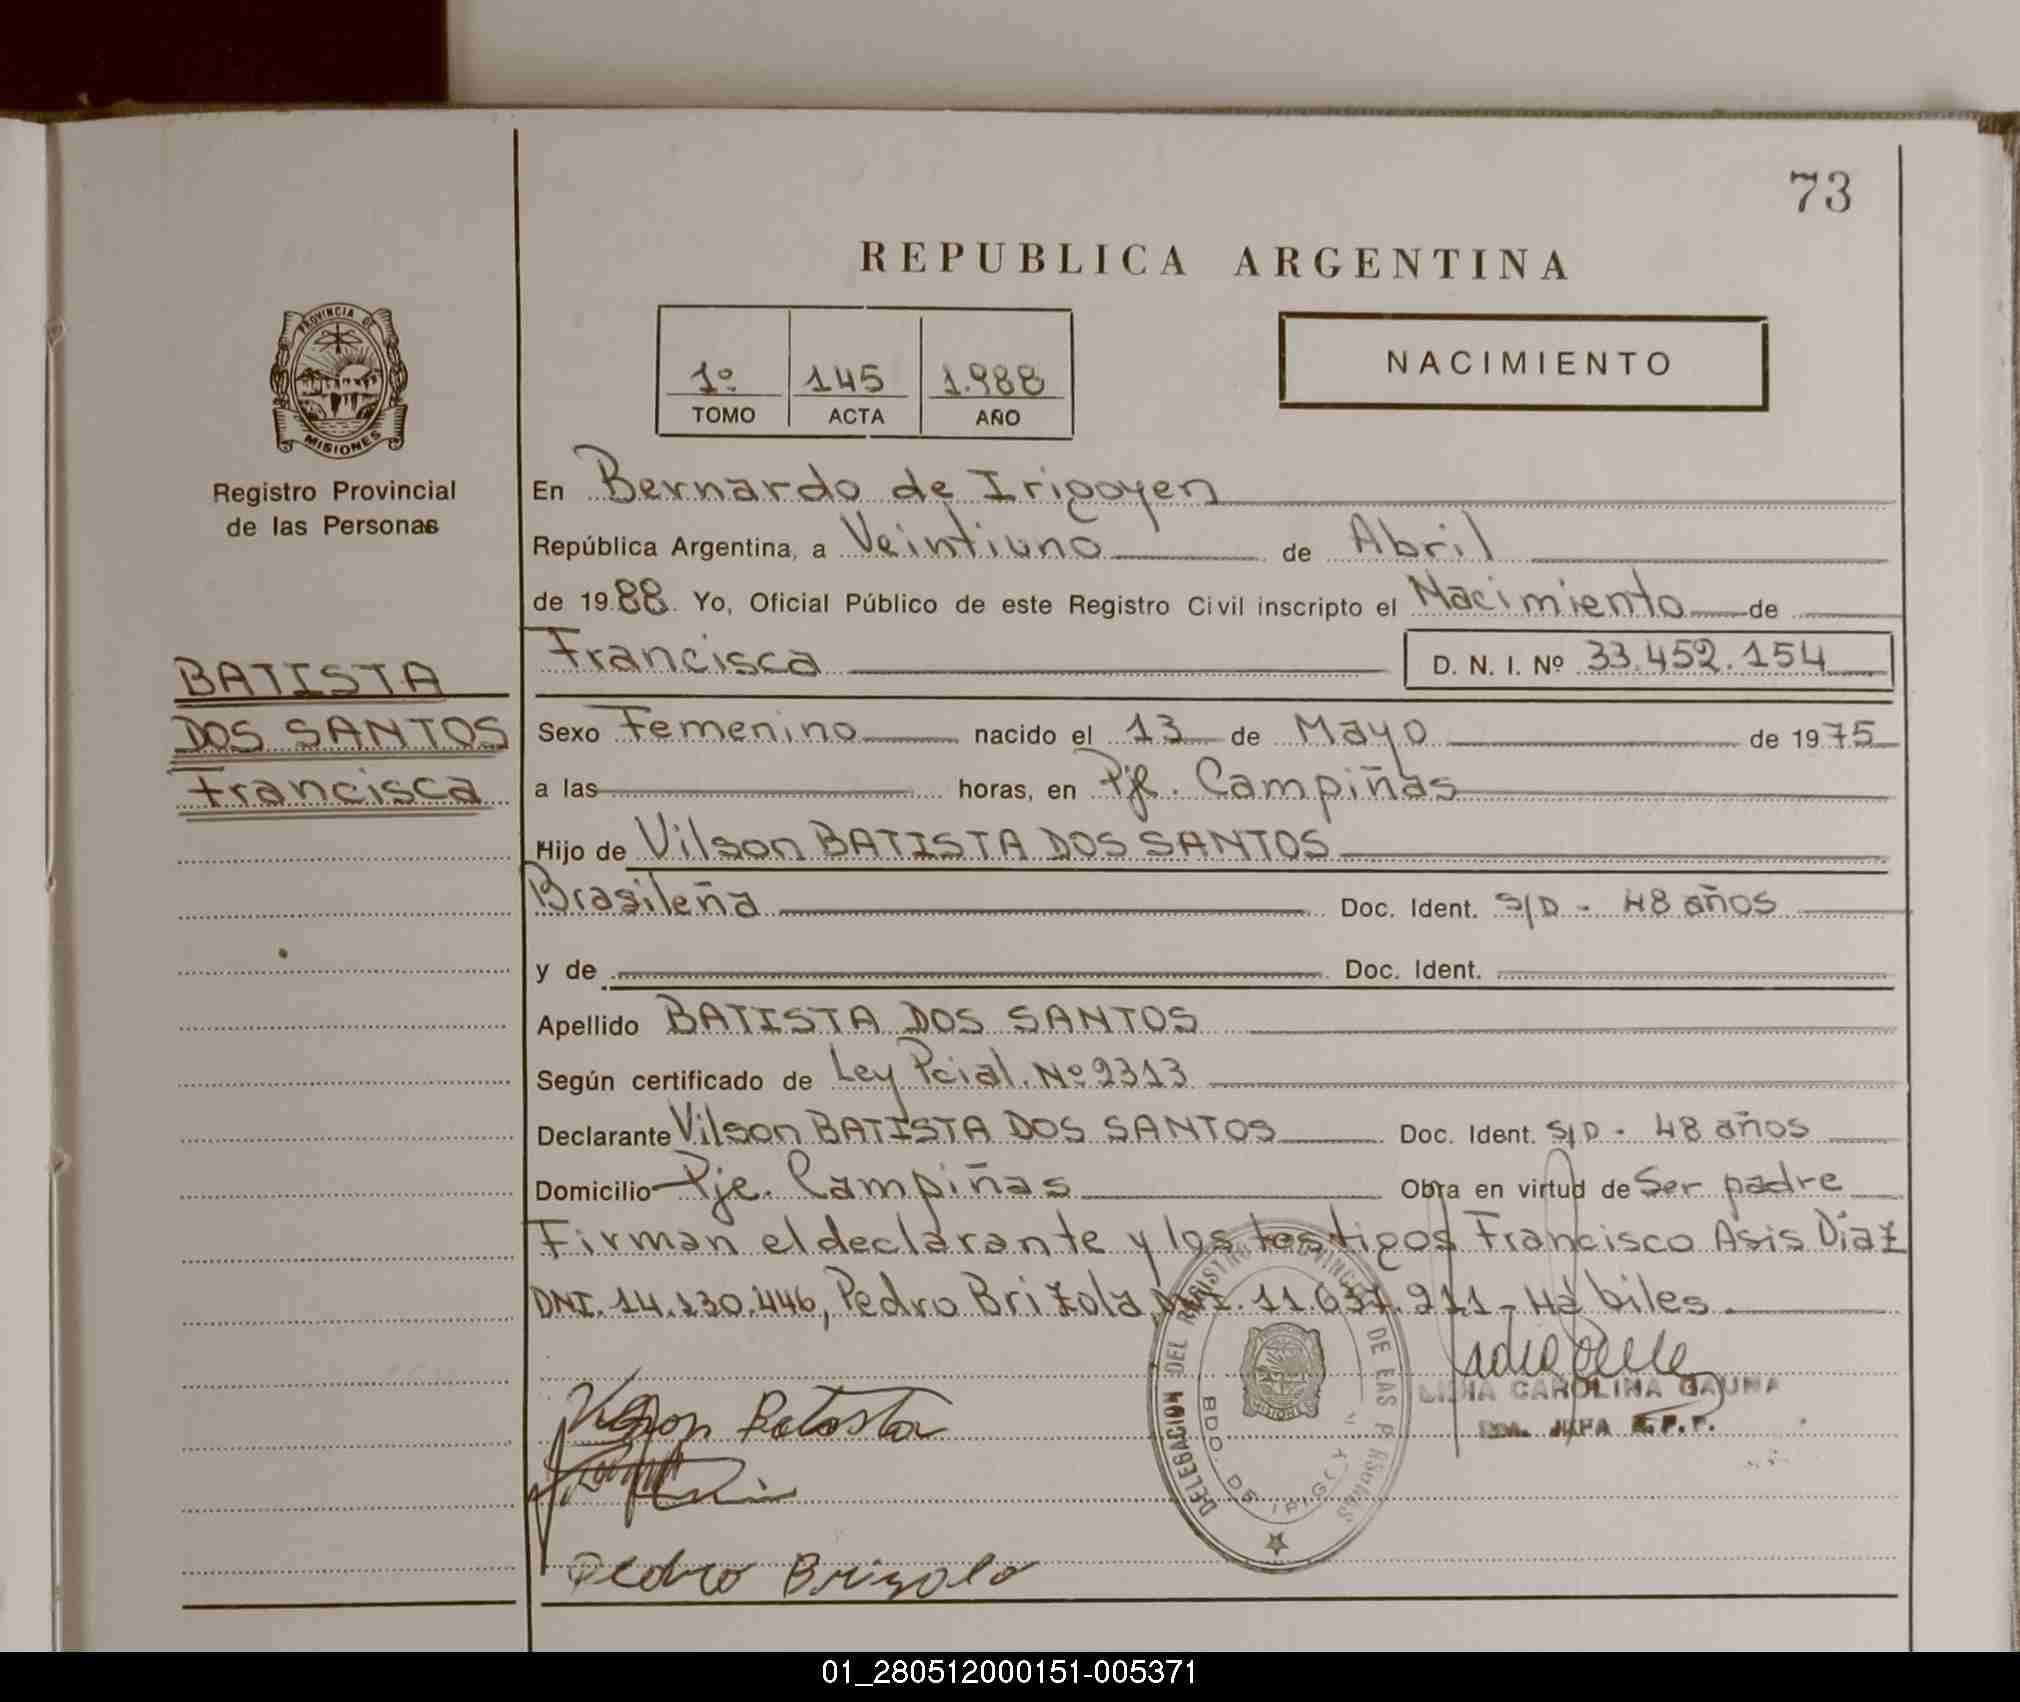 73
REPUBLICA ARGENTINA
PROVINCIA DE
MISIONES
Registro Provincial
de las Personas
1º 145 1.988
TOMO ACTA AÑO
NACIMIENTO
En Bernardo de Irigoyen
República Argentina, a Veintiuno de Abril
de 1988. Yo, Oficial Público de este Registro Civil inscripto el Nacimiento de
Francisca D. N. I. Nº 33.452.154
BATISTA
DOS SANTOS
Francisca
Sexo Femenino nacido el 13 de Mayo de 1975
a las horas, en Pje. Campiñas
Hijo de Vilson BATISTA DOS SANTOS
Brasileña Doc. Ident. S/D - 48 años
y de Doc. Ident.
Apellido BATISTA DOS SANTOS
Según certificado de Ley Pcial. Nº 2313
Declarante Vilson BATISTA DOS SANTOS Doc. Ident. S/D - 48 años
Domicilio Pje. Campiñas Obra en virtud de Ser padre
Firman el declarante y los testigos Francisco Asis Diaz
DNI. 14.130.446, Pedro Brizola, DNI. 11.631.211 - Hábiles
CAROLINA GAUNA
Vilson Batista
DELEGACION DEL REGISTRO PROVINCIAL DE LAS PERSONAS
BDO. DE IRIGOY
Pedro Brizola
01_280512000151-005371